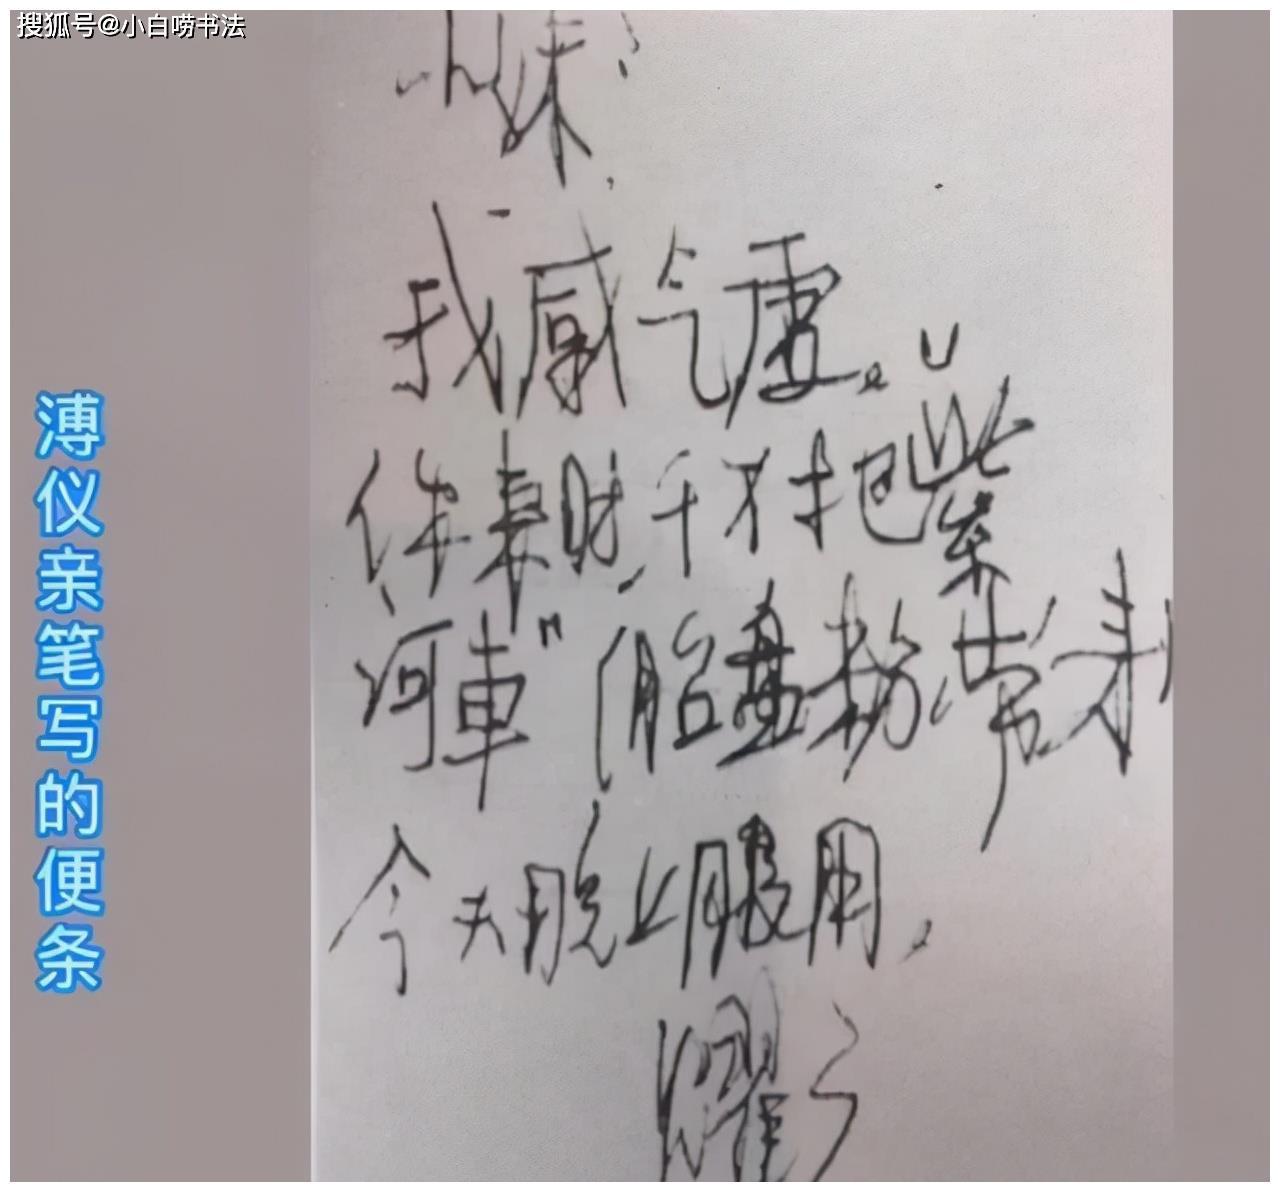 搜狐号@小白唠书法
小妹：
我感气虚。
你来时，千万把“紫
河車”（胎盘粉）带来
今天晚上服用，
耀之
溥仪亲笔写的便条